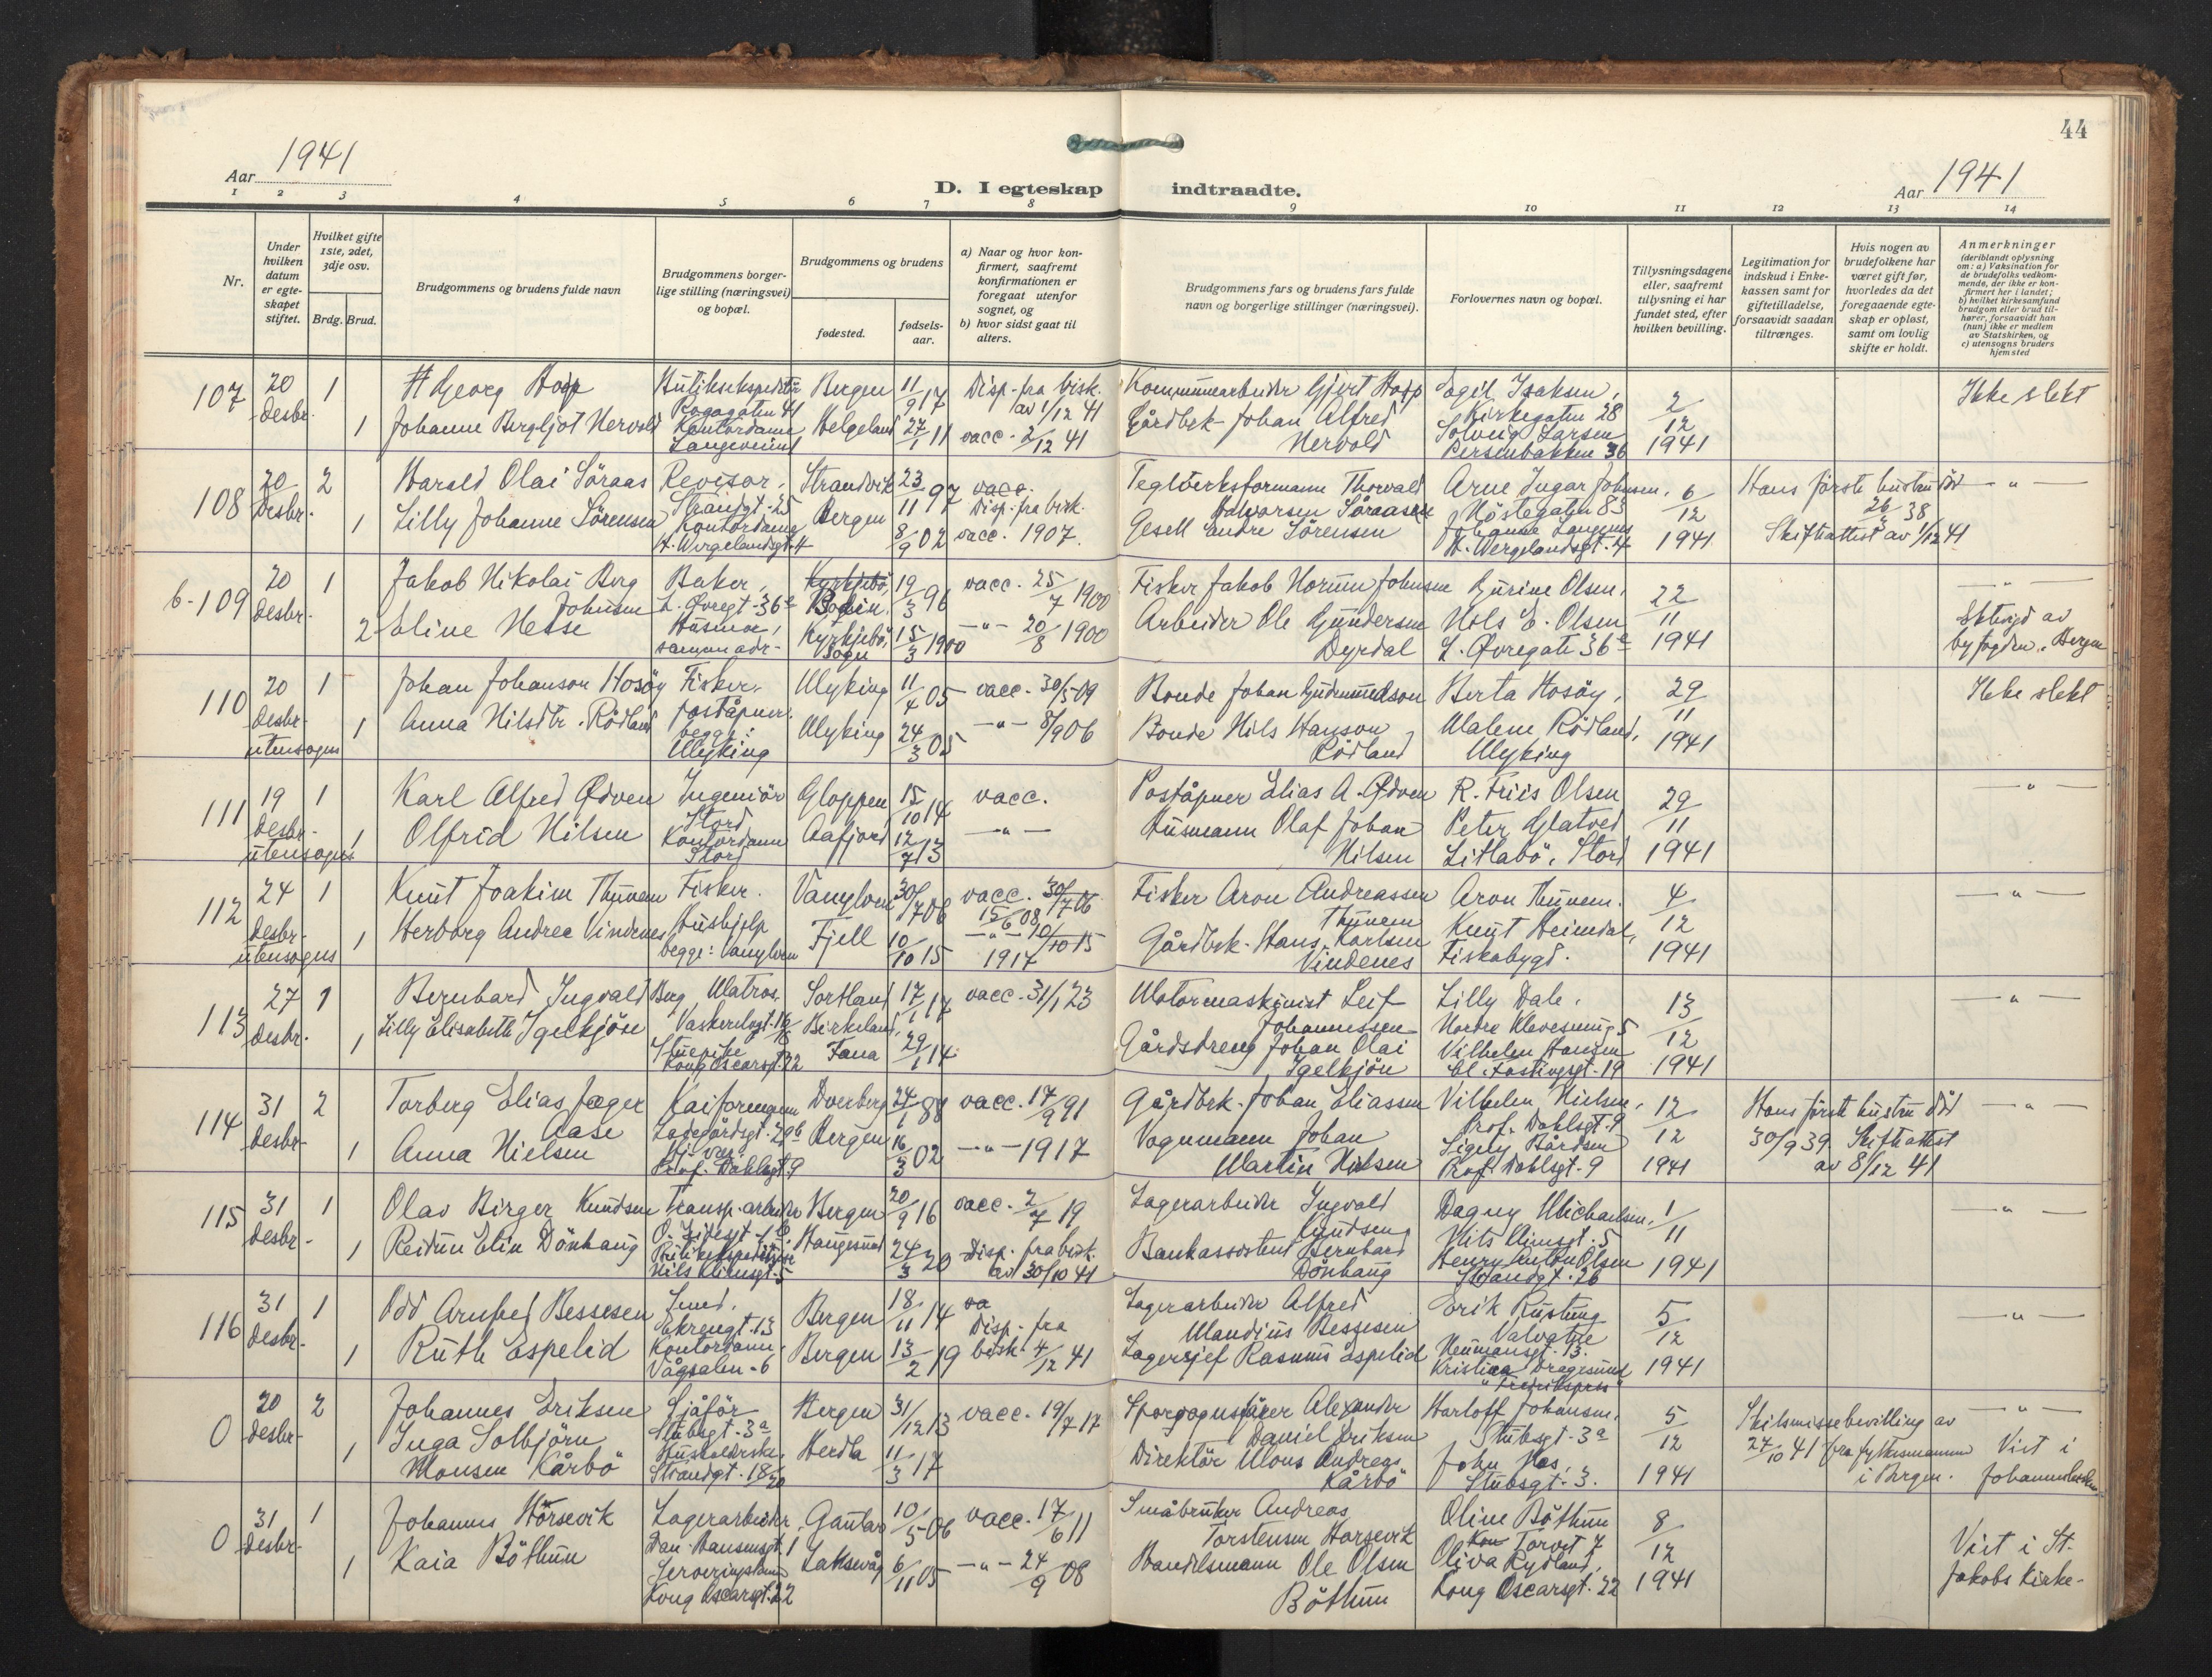 44
Aar 1941
D. I egteskap indtraadte.
Aar 1941
1 2 3 4 5 6 7 8 9 10 11 12 13 14
Nr.
Under hvilken datum er egteskapet stiftet.
Hvilket gifte 1ste, 2det, 3dje osv.
Brdg. Brud.
Brudgommens og brudens fulde navn
Brudgommens borgerlige stilling (næringsvei) og bopæl.
Brudgommens og brudens
fødested.
fødselsaar.
a) Naar og hvor konfirmert, saafremt konfirmationen er foregaat utenfor sognet, og
b) hvor sidst gaat til alters.
Brudgommens fars og brudens fars fulde navn og borgerlige stillinger (næringsvei).
Forlovernes navn og bopæl.
Tillysningsdagene eller, saafremt tillysning ei har fundet sted, efter hvilken bevilling.
Legitimation for indskud i Enkekassen samt for giftetilladelse, forsaavidt saadan tiltrænges.
Hvis nogen av brudefolkene har været gift før, hvorledes da det foregaaende egteskap er opløst, samt om lovlig skifte er holdt.
Anmerkninger (deriblandt oplysning om: a) Vaksination for de brudefolks vedkommende, der ikke er konfirmert her i landet; b) hvilket kirkesamfund brudgom eller brud tilhører, forsaavidt han (hun) ikke er medlem av Statskirken, og c) utensogns bruders hjemsted
107 20 desbr. 1 Georg Hopp Butikekspeditør Bergen 11/9 17 Disp. fra bisk. av 1/12 41 Kommunearbeider Gjert Hopp Isaksen, Kirkegaten 28 2/12 1941 Ikke slekt
1 Johanne Bergljot Nervold Kontordame Helgeland 27/1 11 vacc. 2/12 41 Gårdbrk. Johan Alfred Nervold Solveig Larsen Persenbakken 36
108 20 desbr. 2 Harald Olai Söraas Revisor. Strandgt. 25 Strandvik 23/11 97 vacc. Disp. fra bisk. Teglverksformann Thorvald Halvorsen Söraasen Arne Ingar Johnsen, Nöstegaten 83 6/12 1941 Hans förste hustru död 26/2 38 Skifteattest av 1/12 41 — " —
1 Lilly Johanne Sörensen Kontordame H. Wergelandsgt. 4 Bergen 8/9 02 vacc. 1907. Gesell Andre Sörensen Johanne H. Wergelandsgt. 4
6-109 20 desbr. 1 Jakob Nikolai Berg Johnsen Baker, L. Øvregt. 36a Bodin. 19/3 96 vacc. 25/7 1900 Fisker Jakob Johnsen Gurine Olsen, 22/11 1941 — " —
2 Eline Hesse Husmor, samme adr. Kyrkjebö, Sogn 15/3 1900 — " — 20/8 1900 Arbeider Ole Gundersen Dyrdal Nils E. Olsen L. Øvregate 36a Ektevigd av byfogden, Bergen
110 20 desbr. utensogns 1 Johan Johanson Hosöy Fisker. 11/4 05 vacc. 30/5 09 Bonde Johan Gudmundson Berta Hosöy, 29/11 1941 Ikke slekt
1 Anna Nilsdtr. Rödland poståpner. begge: 24/3 05 — " — 8/9 06 Bonde Nils Hanson Rödland Malene Rödland,
111 19 desbr. utensogns 1 Karl Alfred Ødven Ingeniör Stord Gloppen 15/10 14 vacc. Poståpner Elias A. Ødven R. Friis Olsen 29/11 1941 — " —
1 Olfrid Nilsen Kontordame Stord Aafjord 12/7 13 — " — Husmann Olaf Johan Nilsen Peter Glatved Litlabö, Stord
112 24 desbr. utensogns 1 Knut Joakim Thunem Fisker. Vanylven 30/7 06 vacc. 15/6 08 Fisker Aron Andreassen Thunem Aron Thunem. 4/12 1941 — " —
1 Herborg Andrea Vindenes Hushjelp begge: Vanylven Fjell 10/10 15 1917 Gårdbrk. Hans Karlsen Vindenes Knut Heimdal, Fiskabygd.
113 27 desbr. 1 Bernhard Ingvald Berg Matros, Sortland 17/1 17 vacc. 31/1 23 Motormaskinist Leif Johannessen Lilly Dale, Nordre Kleveseming 5 13/12 1941 — " —
1 Lilly Elisabeth Igelkjön Stuepike Kong Oscarsgt. 22 Birkeland, Fana 29/1 14 Gårdsdreng Johan Olai Igelkjön Vilhelm Hansen Cl. Fastingsgt. 19
114 31 desbr. 2 Torberg Elias Jæger Aase Kaiformann Ladegårdsgt. 29b Dverberg 24/1 88 vacc. 17/9 91 Gårdbrk. Johan Eliassen Vilhelm Nielsen, Prof. Dahlsgt. 9 12/12 1941 Hans förste hustru död 30/9 39. Skifteattest av 8/12 41 — " —
1 Anna Nielsen Prof. Dahlsgt. 9 Bergen 16/3 02 — " — 1917 Vognmann Johan Martin Nielsen Bårdsen Prof. Dahlsgt. 9
115 31 desbr. 1 Olav Birger Knudsen Transp. arbeider Bergen 20/9 16 vacc. 2/7 19 Lagerarbeider Ingvald Knudsen Dagny Michaelsen, Nils Klimsgt. 5 1/11 1941 — " —
1 Reidun Elin Dönhaug Butikekspeditrise Nils Klimsgt. 5 Haugesund 24/3 20 Disp. fra bisk. av 30/10 41 Bankassistent Bernhard Dönhaug Henry Anton Olsen Strandgt. 26
116 31 desbr. 1 Odd Arnfred Bessesen Smed, Ekrengt. 13 Bergen 18/11 14 va Disp. fra bisk. 4/12 41 Lagerarbeider Alfred Mandius Bessesen Erik Rustung Valvatne Neumannsgt. 13. 5/12 1941 — " —
1 Ruth Espelid Kontordame, Vågsalm. 6 Bergen 13/2 19 Lagersjef Rasmus Espelid Dragesund
0 20 desbr. 2 Johannes Eriksen Sjåför Stubsgt. 3a Bergen 31/12 13 vacc. 19/7 17 Alexander Daniel Eriksen Harloff Johansen, Stubsgt. 3a 5/12 1941 Skilsmissebevilling av 27/10 41 fra fylkesmannen i Bergen. — " — Viet i Johanneskirken
1 Inga Solbjörn Monsen Kårbö Strandgt. 18/20 Herdla 11/3 17 Direktör Mons Andreas Kårbö John Næs, Stubsgt. 3.
0 31 desbr. 1 Johannes Horsevik Lagerarbeider, Gaular 10/5 06 vacc. 17/6 11 Småbruker Andreas Torstensen Horsevik Oline Böthun Torvet 7 8/12 1941 Viet i St. Jakobs kirke.
1 Kaia Böthun Kong Oscarsgt. 22 Laksevåg 6/11 05 — " — 24/9 08 Handelsmann Ole Olsen Böthun Oliva Rydland, Kong Oscarsgt. 22